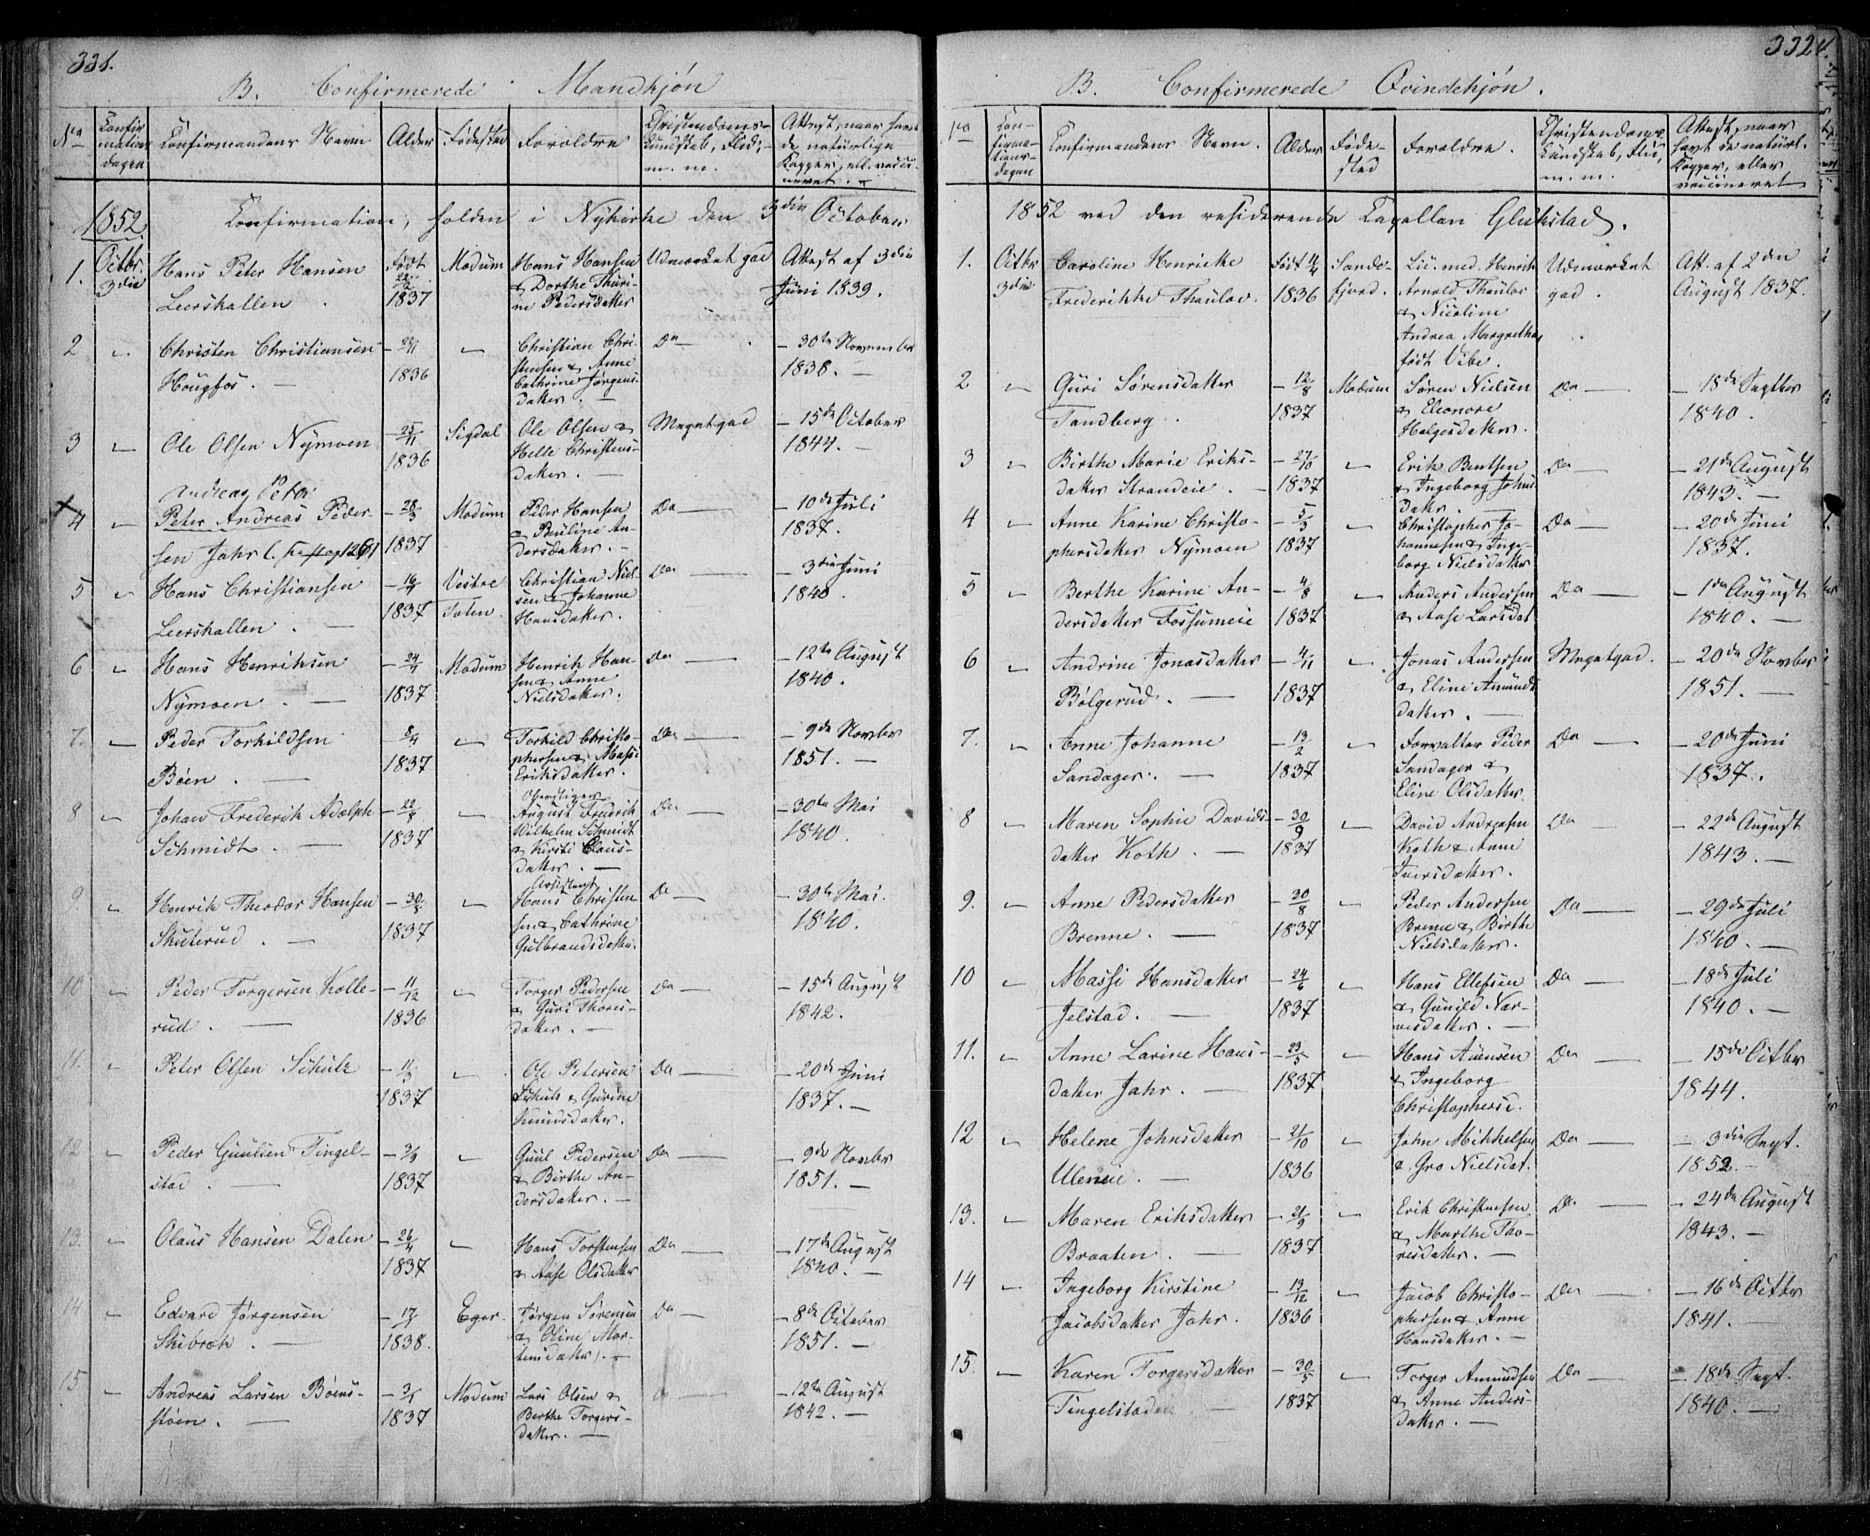 331.
B. Confirmerede Mandkjøn
No
Confir
mations
dagen
Confirmandens Navn
Alder
Fødested
Forældre
Christendoms-
Kundskab, Flid,
m. m.
Attest, naar havt
de naturlige
Kopper, ell. vacci-
neret.
1852. Confirmation, holden i Nykirke den 3die October
1. Octbr. 3die
Hans Peter Hansen
Leershallen.
født 1837
Modum
Hans Hansen
& Dorthe Thuri-
ne Pedersdatter
Udmærket god
Attest af 3die
Juni 1839.
2 "
Christen Christiansen
Hougfos.
1836
"
Christian Chri-
stensen & Anne
Cathrine Jørgens-
datter.
Do
30te November
1838.
3 "
Ole Olsen Nymoen
25/11 1836
Sigdal
Ole Olsen &
Helle Christens-
datter.
Megetgod
15de October
1844.
Andreas Peter
4 "
Peter Andreas Peder
sen Jahr
28/3 1837
Modum
Peder Hansen
& Pauline An-
dersdatter.
Do
10de Juli
1837.
5 "
Hans Christiansen
Leershallen.
1837
Vestre
Toten.
Christian Niel-
sen & Johanne
Hansdatter.
Do
3die Juni
1840.
6 "
Hans Henriksen
Nymoen.
24/4 1837
Modum
Henrik Han-
sen & Anne
Nielsdatter.
Do
12te August
1840.
7. "
Peder Torkildsen
Böen.
1837
"
Torkild Christo-
phersen & Massi
Eriksdatter.
Do
9de Novbr
1851.
8 "
Johan Frederik Adolph
Schmidt.
22/8 1837
"
Oberstiger
August Frederik
Wilhelm Schmidt
& Kirsti Claus-
datter.
Do
30te Mai
1840.
9 "
Henrik Theodor Hansen
Skuterud.
30/8 1837
"
Assistent
Hans Christen
sen & Cathrine
Gulbrandsdatter.
Do
30te Mai.
1840.
10 "
Peder Torgersen Kolle-
rud.
11/12 1836
"
Torger Pedersen
& Guri Thores-
datter.
Do
15de August
1842.
11. "
Peter Olsen Schulz
11/3 1837
"
Ole Petersen
Schulz & Gurine
Knudsdatter.
Do
20de Juni
1837.
12 "
Peder Guulsen Tingel-
stad.
1837
"
Guul Pedersen
& Birthe An-
dersdatter.
Do
9de Novbr
1851.
13. "
Olaus Hansen Dalen
26/4 1837
"
Hans Torstensen
& Aase Olsdatter
Do
17de August
1840.
14 "
Edvard Jørgensen
Skibrek.
1838.
Eger.
Jørgen Sørensen
& Oline Mor-
tensdatter.
Do
8de October
1851.
15 "
Andreas Larsen Böens-
støen.
1837
Modum
Lars Olsen &
Berthe Torgers-
datter.
12te August
1842.
332
B. Confirmerede Qvindekjøn.
No
Con-
firma-
tions-
dagen
Confirmandens Navn.
Alder
Føde-
sted
Forældre.
Christendoms-
Kundskab, Flid,
m. m.
Attest, naar
havt de naturl.
Kopper, eller
vaccineret
1852 ved den residerende Capellan Glükstad.
1. Octbr 3die
Caroline Henriette
Frederikke Thaulow.
født 1836
Sande-
fjord.
Lic. med. Henrik
Arnold Thaulow
& Nicoline
Andrea Margrethe,
født Vibe.
Udmærket
god.
Att. af 2den
August 1837.
2 "
Guri Sørensdatter
Tandberg.
12/8 1837
Modum
Søren Nielsen
& Eleonore
Helgesdatter.
Do
18de Septbr
1840.
3 "
Birthe Marie Eriks-
datter Strandeie.
27/10 1837
"
Erik Bentsen
& Ingeborg Johns
datter.
Do
21de August
1843.
4 "
Anne Karine Christo-
phersdatter Nymoen
5/3 1837
"
Christopher Jo-
hannesen & Inge-
borg Nielsdatter
Do
20de Juni
1837.
5 "
Berthe Karine An-
dersdatter Fossumeie
4/8 1837
"
Anders Andersen
& Aase Larsdat
Do
1ste August
1840.
6 "
Andrine Jonasdatter
Bølgerud.
4/11 1837
"
Jonas Andersen
& Eline Amunds
datter.
Megetgod.
20de Novber
1851.
7. "
Anne Johanne
Sandager.
13/2 1837
"
Forvalter Peder
Sandager &
Eline Olsdatter.
Do
20de Juni
1837.
8 "
Maren Sophie Davids
datter Koth.
30/9 1837
"
David Andreasen
Koth & Anne
Iversdatter.
Do
22de August
1843.
9. "
Anne Pedersdatter
Brenne.
30/8 1837
"
Peder Andersen
Brenne & Birthe
Nielsdatter.
Do
29de Juli
1840.
10 "
Massi Hansdatter
Jelstad.
24/6 1837
"
Hans Ellefsen
& Gunild Nar-
vesdatter.
Do
18de Juli
1840.
11. "
Anne Larine Hans-
datter Jahr.
23/5 1837
"
Hans Evensen
& Ingeborg
Christophersd.
Do
15de Octbr
1844.
12 "
Helene Johnsdatter
Uleneie.
21/10 1836
"
John Mikkelsen
& Gro Nielsdat.
Do
3die Sept.
1852.
13. "
Maren Eriksdatter
Braaten.
21/9 1837
"
Erik Christensen
& Marthe Tho-
resdatter.
Do
24de August
1843.
14 "
Ingeborg Kirstine
Jacobsdatter Jahr.
13/12 1836
"
Jacob Christo-
phersen & Anne
Hansdatter.
Do
16de Octbr
1841.
15. "
Karen Torgersdatter
Tingelstadeie
30/5 1837
"
Torger Amundsen
& Anne Anders-
datter.
Do
18de Sept.
1840.